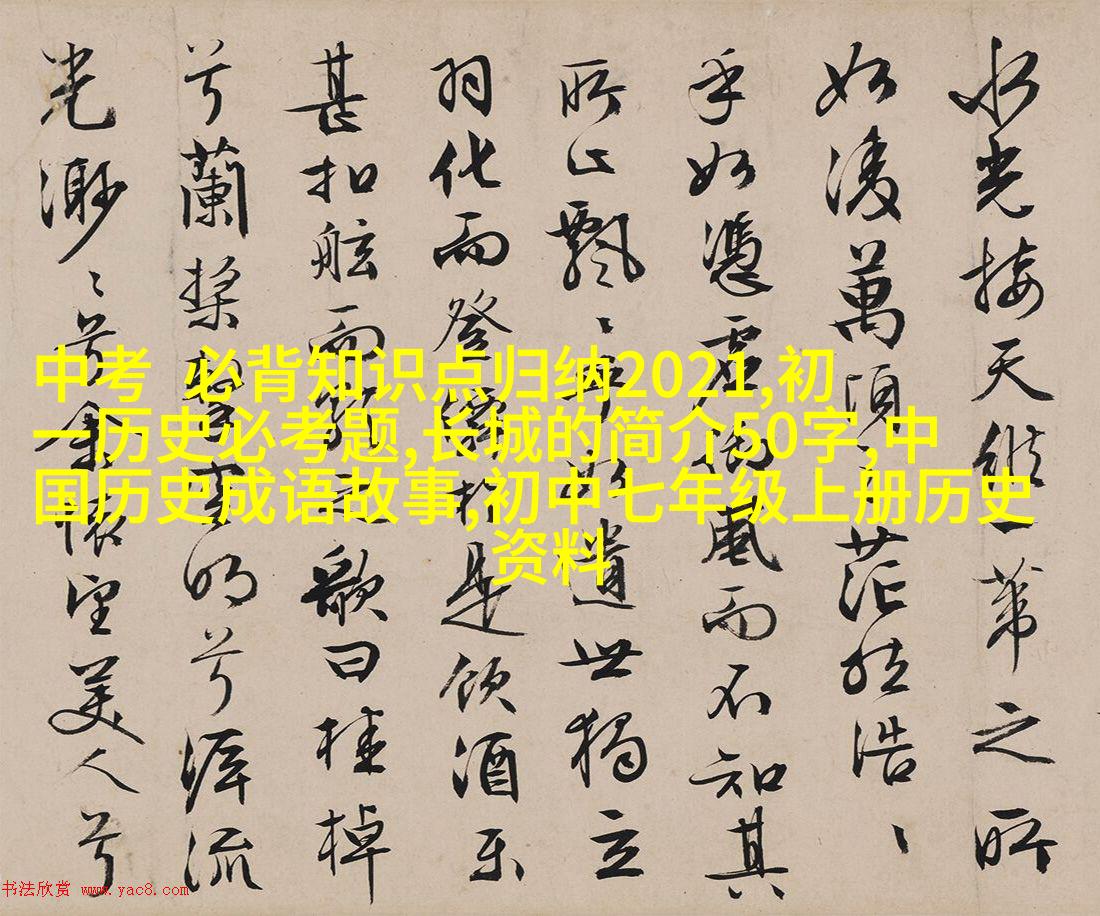 水光接天縱一葦之所
如淩萬頃之茫然浩〻
乎如憑虛御風而不知其
所止飄〻乎如遺世獨立
羽化而登僊於是飲酒樂
甚扣舷而歌之歌曰桂棹
兮蘭槳擊空明兮泝流
光渺〻兮余懷望美人兮
中考 必背知识点归纳2021,初
一历史必考题,长城的简介50字,中
国历史成语故事,初中七年级上册历史
资料
书法欣赏 www.yac8.com